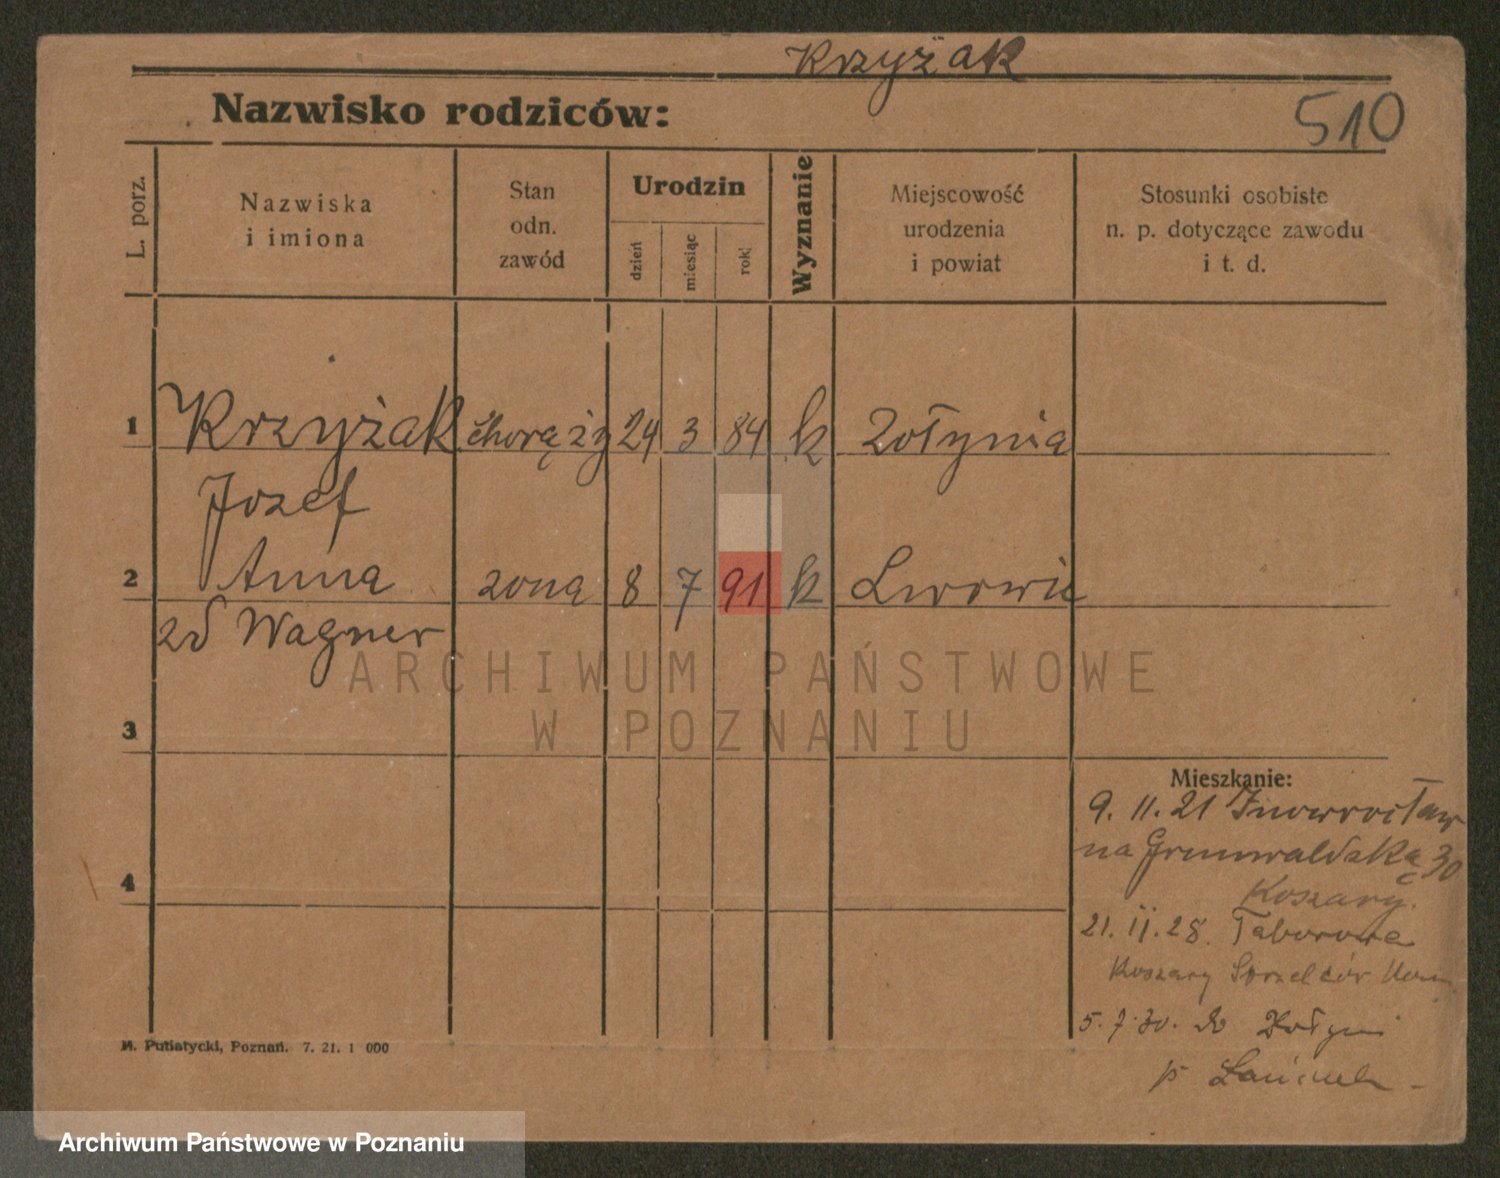 Krzyżak
Nazwisko rodziców:
510
L. porz.
Nazwiska
i imiona
Stan
odn.
zawód
Urodzin
dzień
miesiąc
rok
Wyznanie
Miejscowość
urodzenia
i powiat
Stosunki osobiste
n. p. dotyczące zawodu
i t. d.
1 Krzyżak chorąży 24 3 84 k Zołynia
Jozef
2 Anna zona 8 7 91 k Lwowie
zd Wagner
ARCHIWUM PAŃSTWOWE
W POZNANIU
3
Mieszkanie:
9. 11. 21 Inowrocław
na Grunwaldską 30
4
Koszary.
21. II. 28. Taborowa
Koszary Strzelców
5. 7. 30. do Żołyni
p Łańcuch
M. Putiatycki, Poznań. 7. 21. 1 000
Archiwum Państwowe w Poznaniu